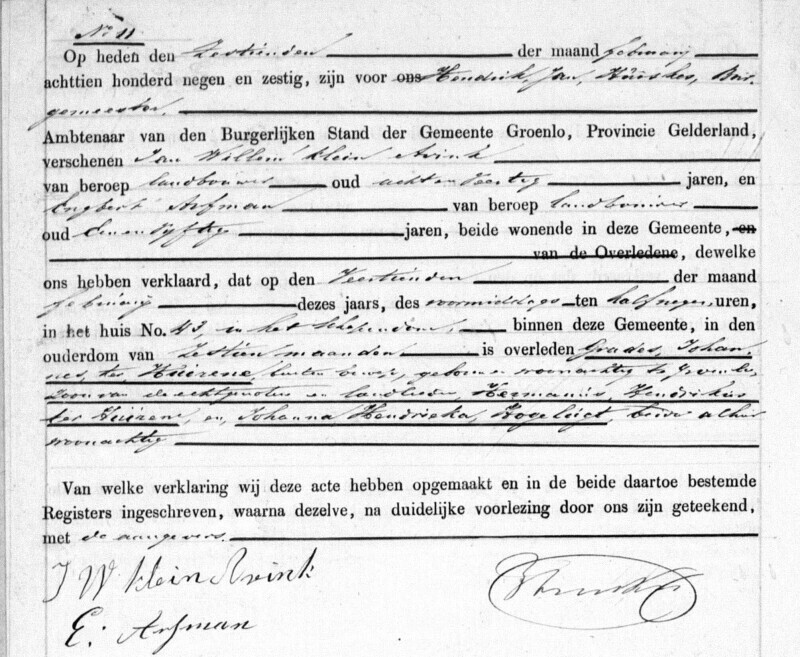 No 11
Op heden den Zestienden der maand februarij
achttien honderd negen en zestig, zijn voor ons Hendrik, Jan, Huiskes, Bur-
gemeester,
Ambtenaar van den Burgerlijken Stand der Gemeente Groenlo, Provincie Gelderland,
verschenen Jan Willem klein Avink
van beroep landbouwer oud acht en veertig jaren, en
Engbert Arfman van beroep landbouwer
oud Een en vijftig jaren, beide wonende in deze Gemeente, en
van de Overledene, dewelke
ons hebben verklaard, dat op den Veertienden der maand
februarij dezes jaars, des voormiddags ten half negen uren,
in het huis No. 43, in het Schependom, binnen deze Gemeente, in den
ouderdom van Zestien maanden is overleden Grades, Johan-
nes, ter Huirene, buiten beroep, geboren en woonachtig te Groenlo,
Zoon van de echtgenooten en landlieden, Hermanus, Hendrikus
ter Huirene, en, Johanna Hendrieka, Hogeleijet, beide alhier
woonachtig
Van welke verklaring wij deze acte hebben opgemaakt en in de beide daartoe bestemde
Registers ingeschreven, waarna dezelve, na duidelijke voorlezing door ons zijn geteekend,
met de aangevers.
J W klein Avink
E: Arfman